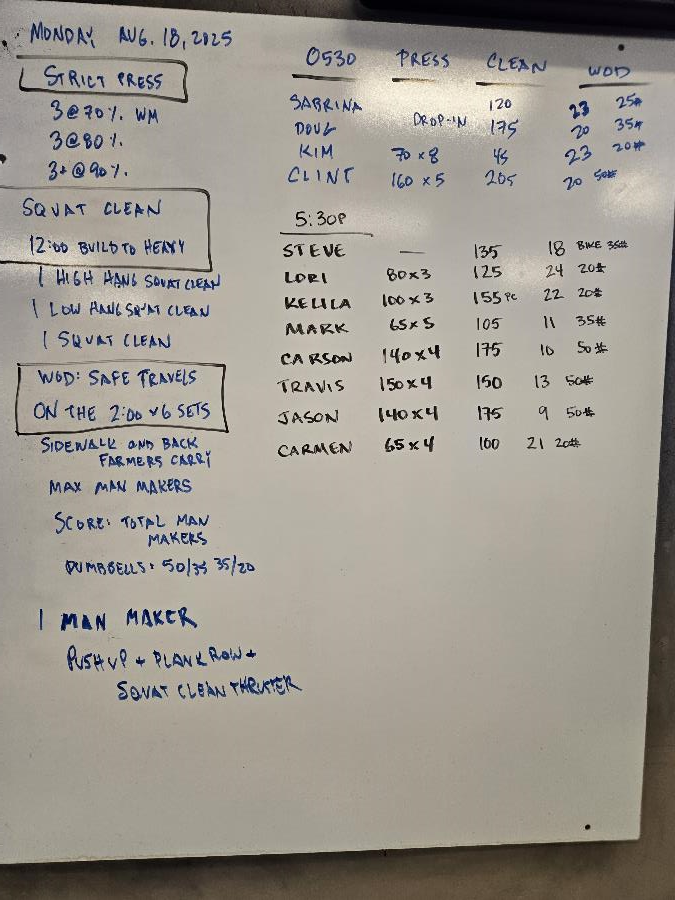 MONDAY, AUG. 18, 2025
STRICT PRESS
3@70%. WM
3@80%.
3+@90%.
SQUAT CLEAN
12:00 BUILD TO HEAVY
1 HIGH HANG SQUAT CLEAN
1 LOW HANG SQUAT CLEAN
1 SQUAT CLEAN
WOD: SAFE TRAVELS
ON THE 2:00 x 6 SETS
SIDEWALK AND BACK
FARMERS CARRY
MAX MAN MAKERS
SCORE: TOTAL MAN
MAKERS
DUMBBELLS: 50/35 35/20
1 MAN MAKER
PUSH UP + PLANK ROW +
SQUAT CLEAN THRUSTER
0530 PRESS CLEAN WOD
SABRINA 120 23 25#
DOUG DROP-IN 175 20 35#
KIM 70 x 8 45 23 20#
CLINT 160 x 5 205 20 50#
5:30P
STEVE — 135 18 BIKE 35#
LORI 80 x 3 125 24 20#
KELILA 100 x 3 155 PC 22 20#
MARK 65 x 5 105 11 35#
CARSON 140 x 4 175 10 50#
TRAVIS 150 x 4 150 13 50#
JASON 140 x 4 175 9 50#
CARMEN 65 x 4 100 21 20#